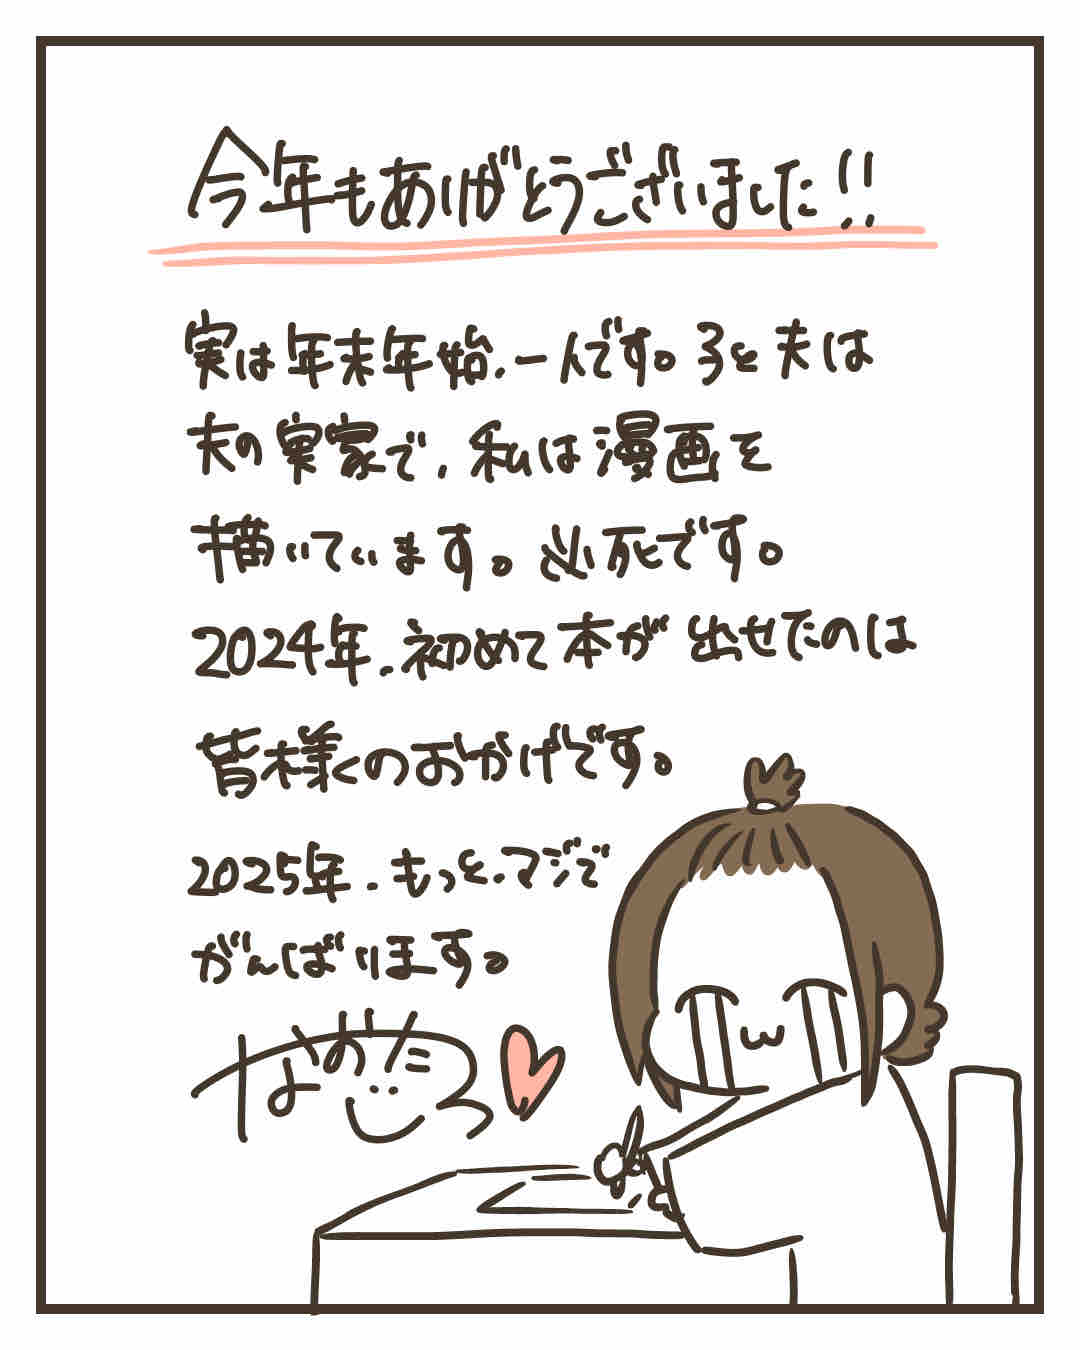 今年もありがとうございました!!
実は年末年始、一人です。ろと夫は
夫の実家で、私は漫画を
描いています。必死です。
2024年、初めて本が出せたのは
皆様のおかげです。
2025年、もっと、マジで
がんばります。